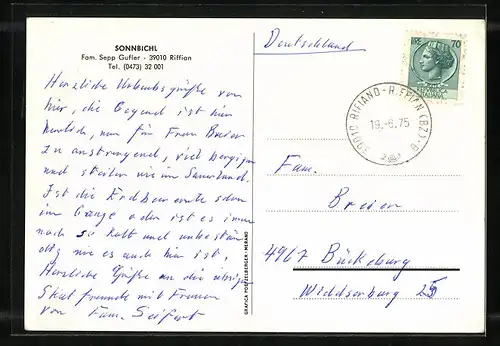 SONNBICHL
Fam. Sepp Gufler - 39010 Riffian
Tel. (0473) 32 001
Herzliche Urlaubsgrüße von
hier, die Gegend ist hier
herrlich, nur für Frau Breier
zu anstrengend, viel bergiger
und steiler wie im Sauerland.
Ist die Erdbeerernte schon
im Gange oder ist es immer
noch so kalt und unbestän
dig wie es auch hier ist.
Herzliche Grüße an die übrigen
Skatfreunde mit Frauen
von Fam. Seifert
GRAFICA POETZELBERGER - MERANO
Deutschland
70
39010 RIFIANO - RIFFIAN (BZ)
19.-6.75
Fam.
Breier
4967 Bückeburg
25